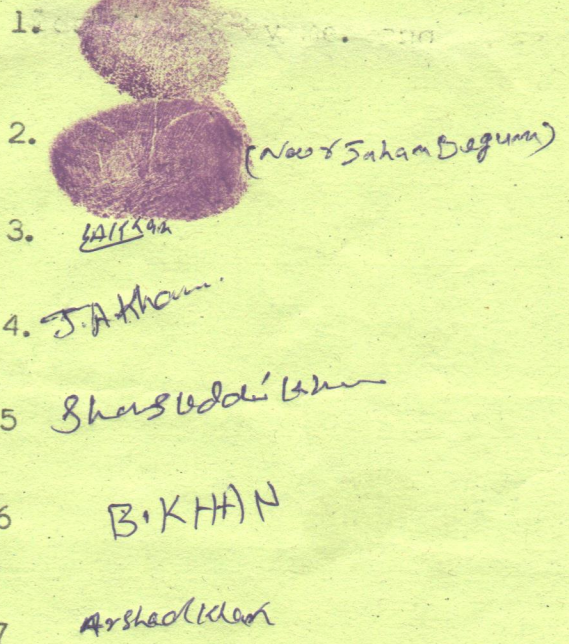 1.
2. (Noor Jaham Begum)
3.
4. J.A Khan
5 Khan
6 B. KHAN
7 Arshad Khan